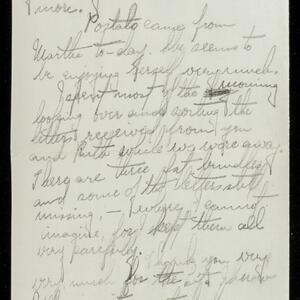 more.
Postals came from
Martha to-day. She seems to
be enjoying herself very much.
I spent most of the morning
looking over and sorting the
letters received from you
and Ruth while we were away.
There are three fat bundles
and some of the letters still
missing, – where I cannot
imagine, for I kept them all
very carefully.
I thank you very
very much for the